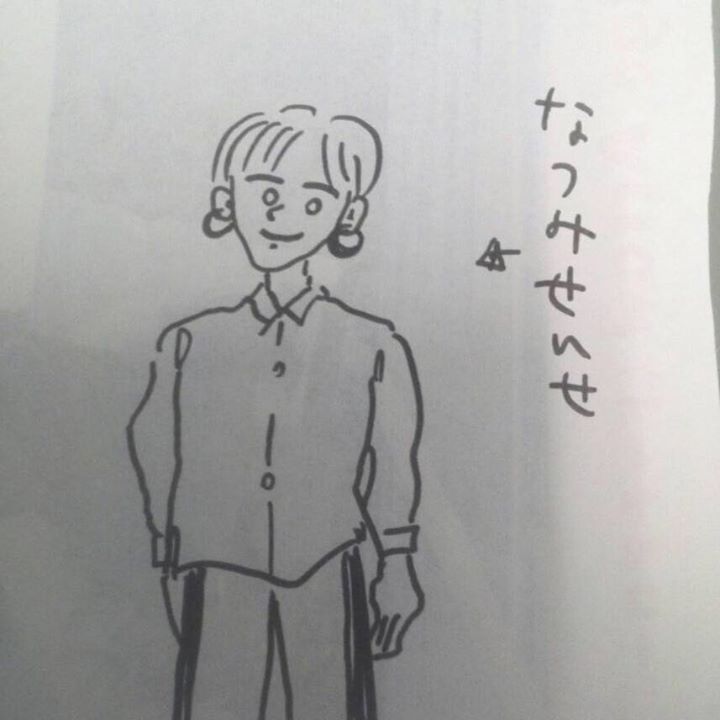 なつみせんせ